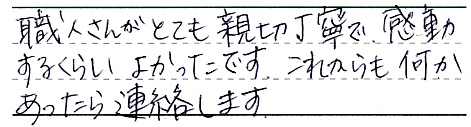 職人さんがとても親切丁寧で、感動
するくらいよかったです。これからも何か
あったら連絡します。